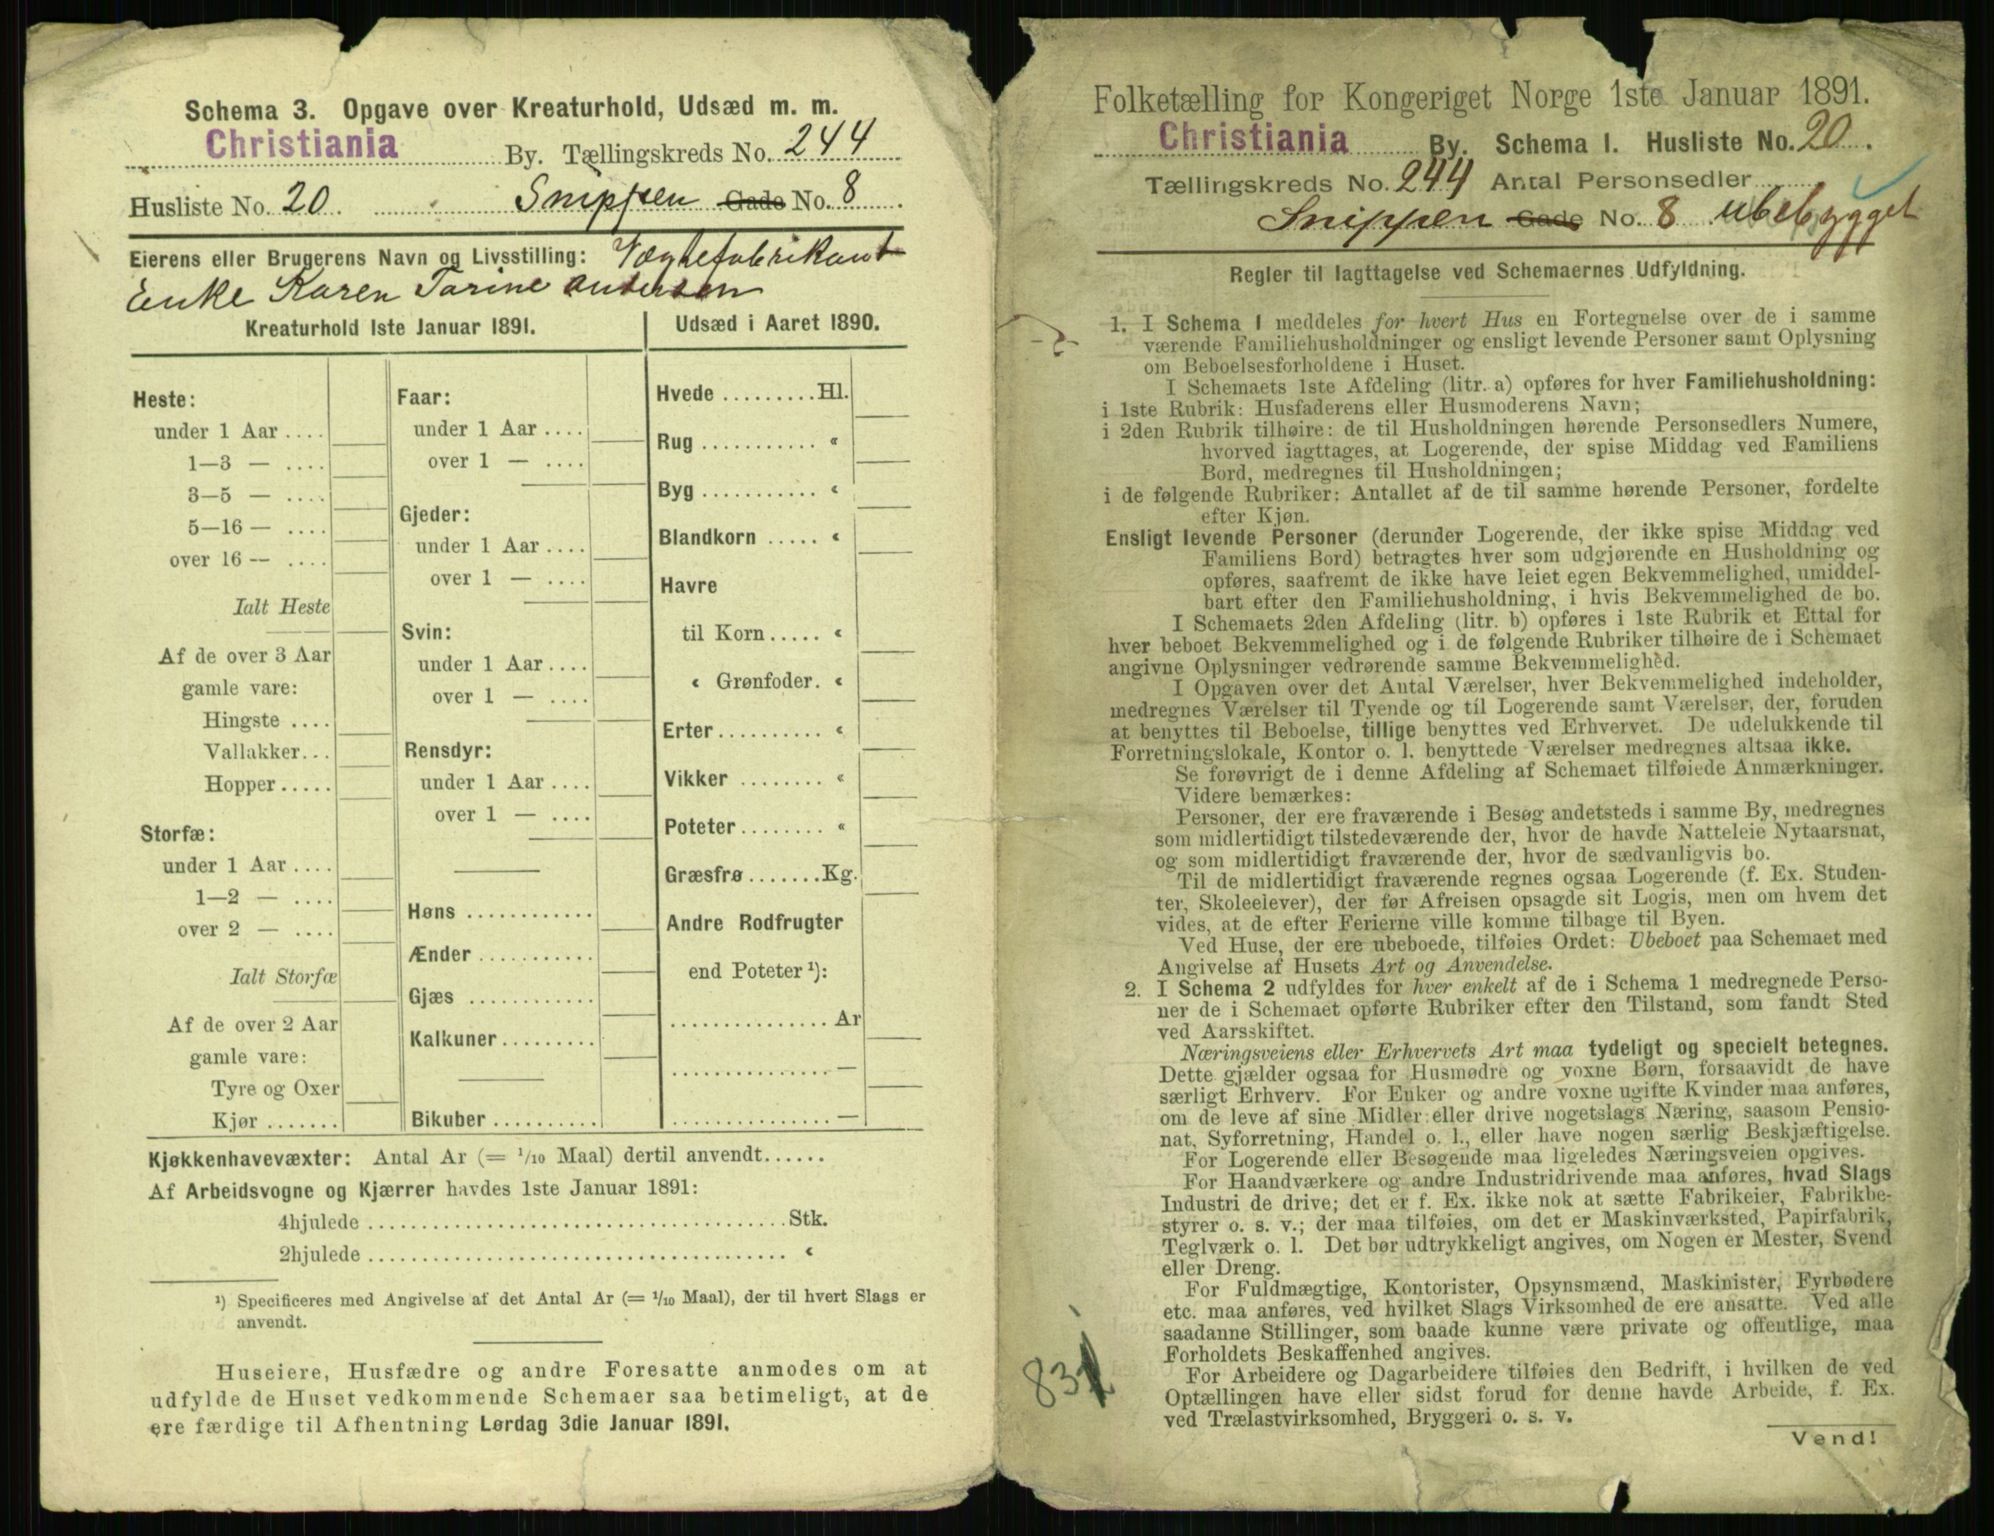 Schema 3. Opgave over Kreaturhold, Udsæd m. m.
Christiania By. Tællingskreds No. 244
Husliste No. 20 Snippen Gade No. 8
Eierens eller Brugerens Navn og Livsstilling: Vægtefabrikant
Enke Karen Tarine Andersen
Kreaturhold 1ste Januar 1891.
Heste:
under 1 Aar ....
1—3 — ....
3—5 — ....
5—16 — ....
over 16 — ....
Ialt Heste
Af de over 3 Aar
gamle vare:
Hingste ....
Vallakker...
Hopper.....
Storfæ:
under 1 Aar ....
1—2 — ....
over 2 — ....
Ialt Storfæ
Af de over 2 Aar
gamle vare:
Tyre og Oxer
Kjør .......
Faar:
under 1 Aar ....
over 1 — ....
Gjeder:
under 1 Aar ....
over 1 — ....
Svin:
under 1 Aar ....
over 1 — ....
Rensdyr:
under 1 Aar ....
over 1 — ....
Høns ............
Ænder ...........
Gjæs ............
Kalkuner.........
Bikuber ..........
Udsæd i Aaret 1890.
Hvede .........Hl.
Rug ........... «
Byg ........... «
Blandkorn ..... «
Havre
til Korn..... «
« Grønfoder. «
Erter.......... «
Vikker ........ «
Poteter........ «
Græsfrø.......Kg.
Andre Rodfrugter
end Poteter ¹):
............... Ar
............... —
............... —
Kjøkkenhavevæxter: Antal Ar (= 1/10 Maal) dertil anvendt......
Af Arbeidsvogne og Kjærrer havdes 1ste Januar 1891:
4hjulede ......................................Stk.
2hjulede ...................................... «
¹) Specificeres med Angivelse af det Antal Ar (= 1/10 Maal), der til hvert Slags er
anvendt.
Huseiere, Husfædre og andre Foresatte anmodes om at
udfylde de Huset vedkommende Schemaer saa betimeligt, at de
ere færdige til Afhentning Lørdag 3die Januar 1891.
Folketælling for Kongeriget Norge 1ste Januar 1891.
Christiania By. Schema I. Husliste No. 20.
Tællingskreds No. 244 Antal Personsedler
Snippen Gade No. 8 ubebygget
Regler til Iagttagelse ved Schemaernes Udfyldning.
1. I Schema 1 meddeles for hvert Hus en Fortegnelse over de i samme
værende Familiehusholdninger og ensligt levende Personer samt Oplysning
om Beboelsesforholdene i Huset.
I Schemaets 1ste Afdeling (litr. a) opføres for hver Familiehusholdning:
i 1ste Rubrik: Husfaderens eller Husmoderens Navn;
i 2den Rubrik tilhøire: de til Husholdningen hørende Personsedlers Numere,
hvorved iagttages, at Logerende, der spise Middag ved Familiens
Bord, medregnes til Husholdningen;
i de følgende Rubriker: Antallet af de til samme hørende Personer, fordelte
efter Kjøn.
Ensligt levende Personer (derunder Logerende, der ikke spise Middag ved
Familiens Bord) betragtes hver som udgjørende en Husholdning og
opføres, saafremt de ikke have leiet egen Bekvemmelighed, umiddel-
bart efter den Familiehusholdning, i hvis Bekvemmelighed de bo.
I Schemaets 2den Afdeling (litr. b) opføres i 1ste Rubrik et Ettal for
hver beboet Bekvemmelighed og i de følgende Rubriker tilhøire de i Schemaet
angivne Oplysninger vedrørende samme Bekvemmelighed.
I Opgaven over det Antal Værelser, hver Bekvemmelighed indeholder,
medregnes Værelser til Tyende og til Logerende samt Værelser, der, foruden
at benyttes til Beboelse, tillige benyttes ved Erhvervet. De udelukkende til
Forretningslokale, Kontor o. l. benyttede Værelser medregnes altsaa ikke.
Se forøvrigt de i denne Afdeling af Schemaet tilføiede Anmærkninger.
Videre bemærkes:
Personer, der ere fraværende i Besøg andetsteds i samme By, medregnes
som midlertidigt tilstedeværende der, hvor de havde Natteleie Nytaarsnat,
og som midlertidigt fraværende der, hvor de sædvanligvis bo.
Til de midlertidigt fraværende regnes ogsaa Logerende (f. Ex. Studen-
ter, Skoleelever), der før Afreisen opsagde sit Logis, men om hvem det
vides, at de efter Ferierne ville komme tilbage til Byen.
Ved Huse, der ere ubeboede, tilføies Ordet: Ubeboet paa Schemaet med
Angivelse af Husets Art og Anvendelse.
2. I Schema 2 udfyldes for hver enkelt af de i Schema 1 medregnede Perso-
ner de i Schemaet opførte Rubriker efter den Tilstand, som fandt Sted
ved Aarsskiftet.
Næringsveiens eller Erhvervets Art maa tydeligt og specielt betegnes.
Dette gjælder ogsaa for Husmødre og voxne Børn, forsaavidt de have
særligt Erhverv. For Enker og andre voxne ugifte Kvinder maa anføres,
om de leve af sine Midler eller drive nogetslags Næring, saasom Pensio-
nat, Syforretning, Handel o. l., eller have nogen særlig Beskjæftigelse.
For Logerende eller Besøgende maa ligeledes Næringsveien opgives.
For Haandværkere og andre Industridrivende maa anføres, hvad Slags
Industri de drive; det er f. Ex. ikke nok at sætte Fabrikeier, Fabrikbe-
styrer o. s. v.; der maa tilføies, om det er Maskinværksted, Papirfabrik,
Teglværk o. l. Det bør udtrykkeligt angives, om Nogen er Mester, Svend
eller Dreng.
For Fuldmægtige, Kontorister, Opsynsmænd, Maskinister, Fyrbødere
etc. maa anføres, ved hvilket Slags Virksomhed de ere ansatte. Ved alle
saadanne Stillinger, som baade kunne være private og offentlige, maa
Forholdets Beskaffenhed angives.
For Arbeidere og Dagarbeidere tilføies den Bedrift, i hvilken de ved
Optællingen have eller sidst forud for denne havde Arbeide, f. Ex.
ved Trælastvirksomhed, Bryggeri o. s. v.
Vend!